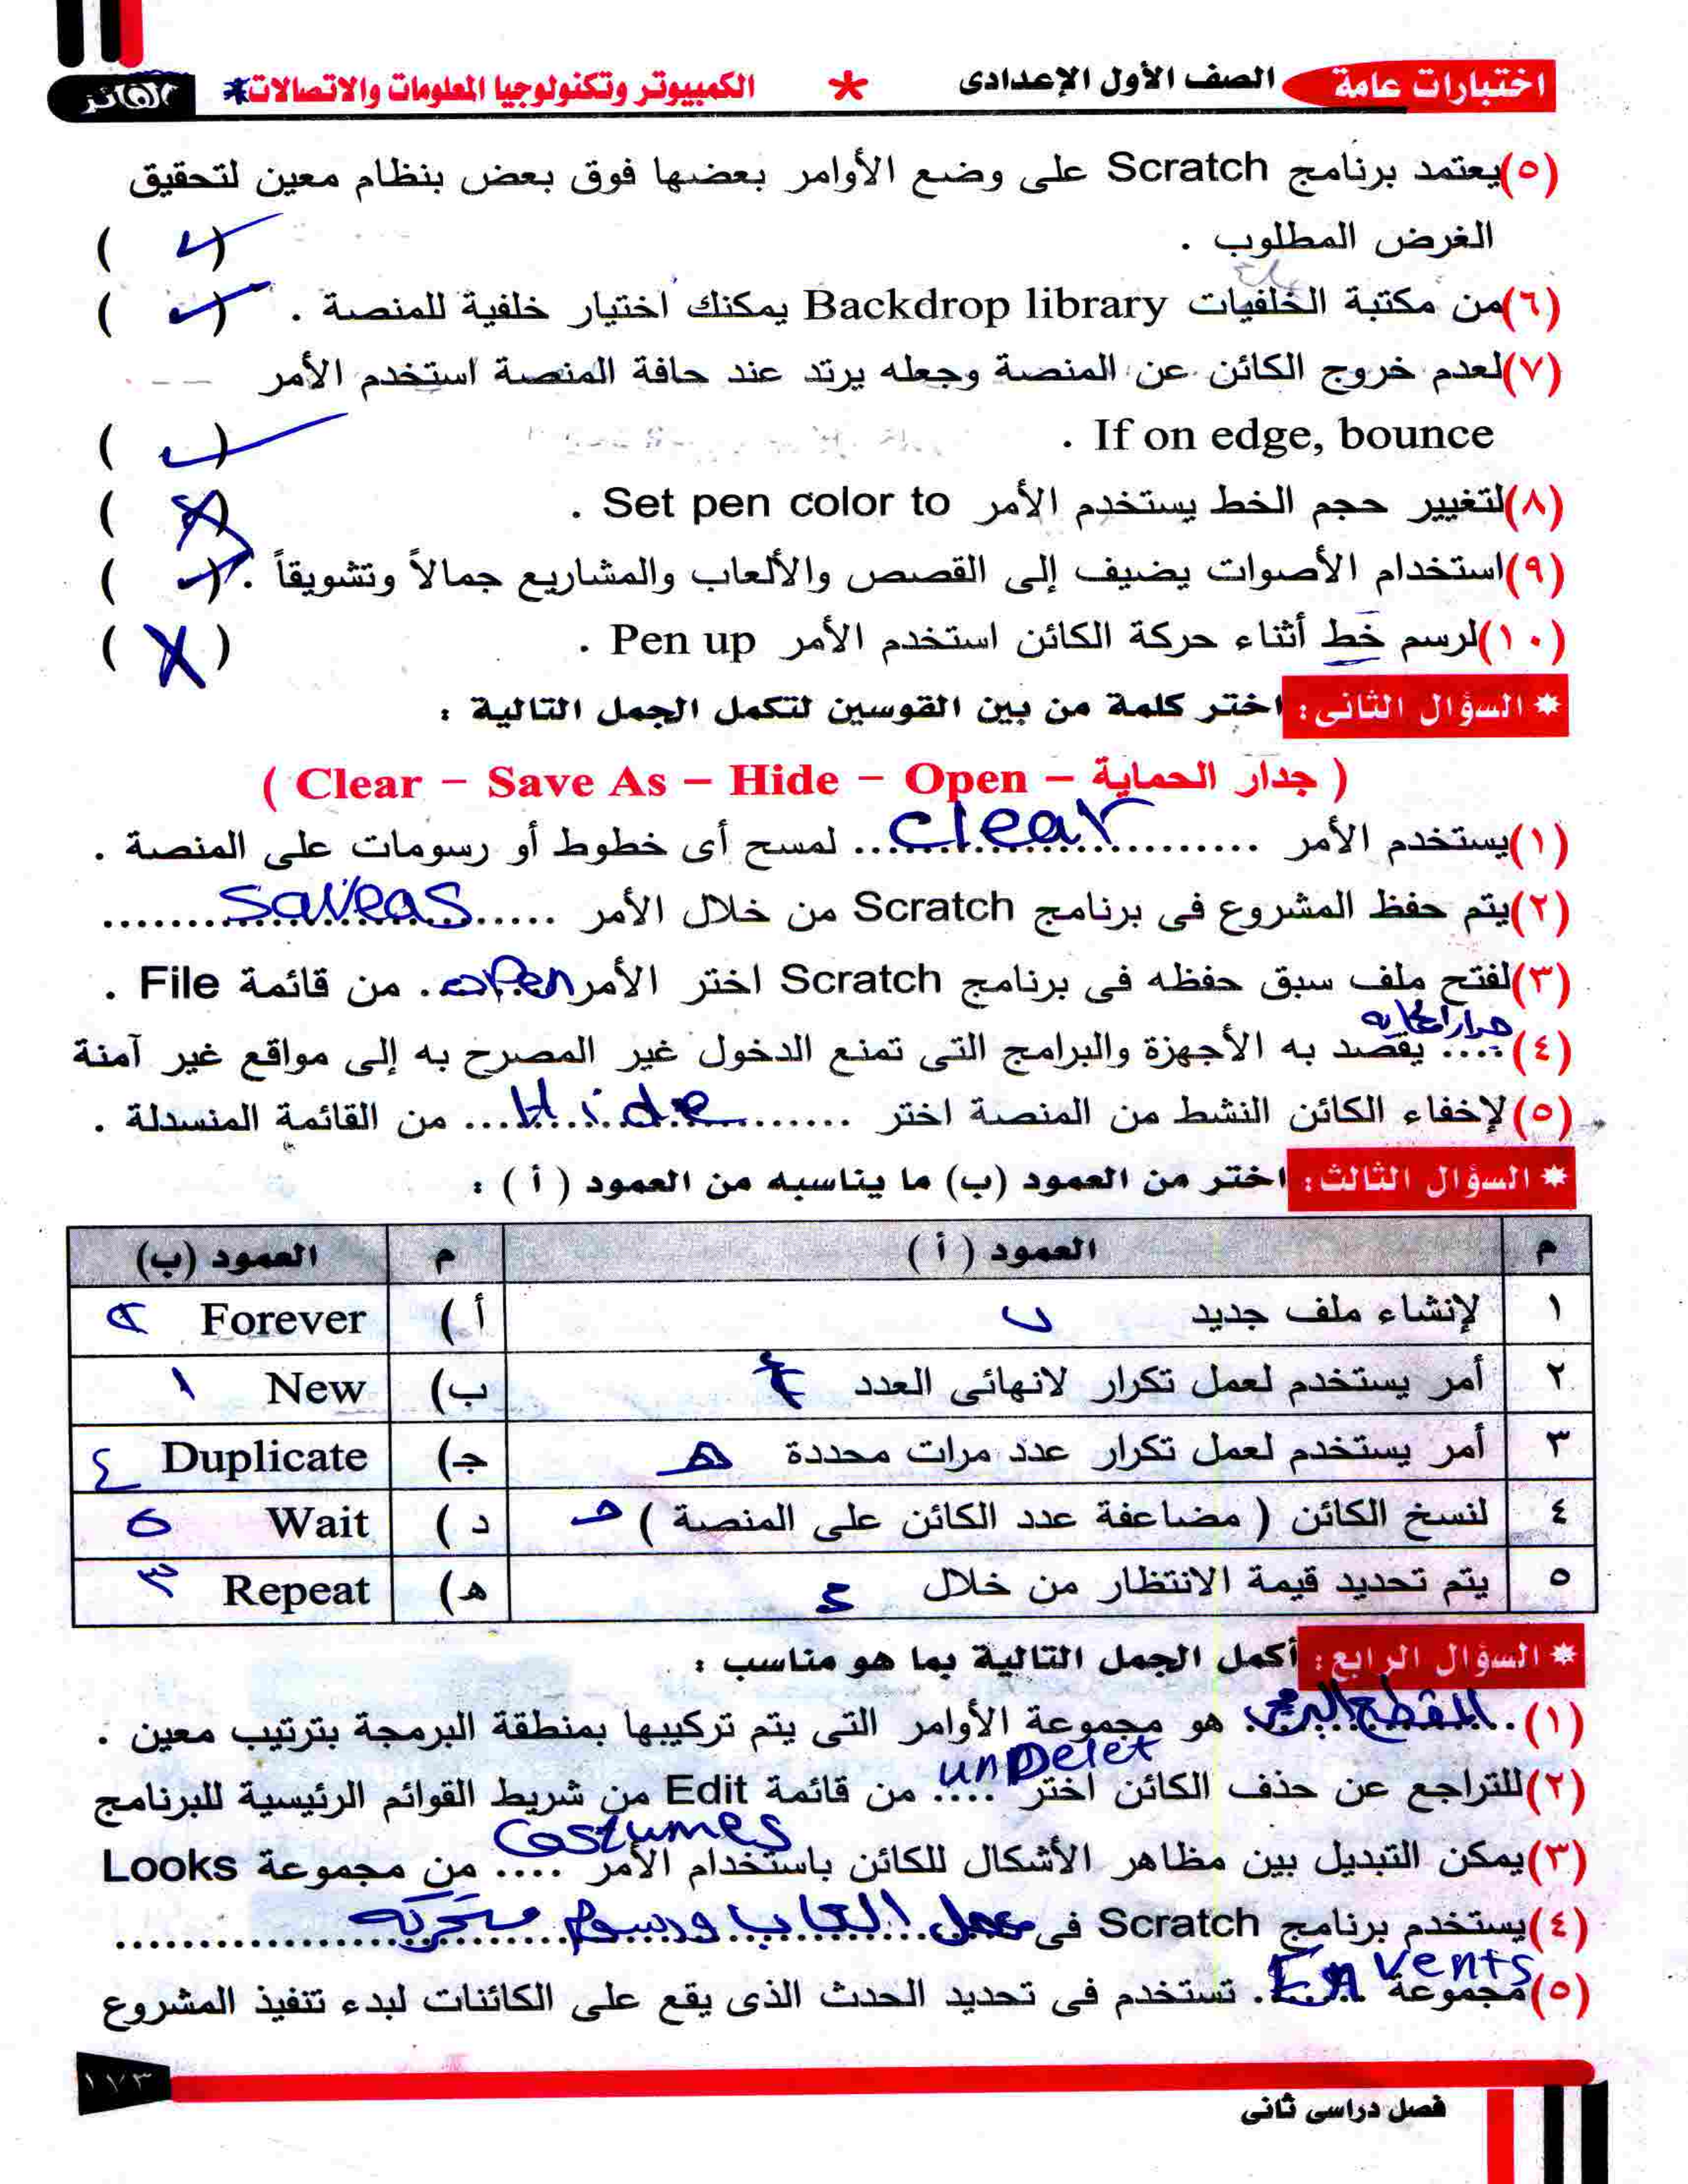 اختبارات عامة الصف الأول الإعدادى * الكمبيوتر وتكنولوجيا المعلومات والاتصالات* الفائز
(٥)يعتمد برنامج Scratch على وضع الأوامر بعضها فوق بعض بنظام معين لتحقيق
الغرض المطلوب . ( ✓ )
(٦)من مكتبة الخلفيات Backdrop library يمكنك اختيار خلفية للمنصة . ( ✓ )
(٧)لعدم خروج الكائن عن المنصة وجعله يرتد عند حافة المنصة استخدم الأمر
If on edge, bounce . ( ✓ )
(٨)لتغيير حجم الخط يستخدم الأمر Set pen color to . ( X )
(٩)استخدام الأصوات يضيف إلى القصص والألعاب والمشاريع جمالاً وتشويقاً . ( ✓ )
(١٠)لرسم خط أثناء حركة الكائن استخدم الأمر Pen up . ( X )
* السؤال الثانى : اختر كلمة من بين القوسين لتكمل الجمل التالية :
( جدار الحماية – Clear – Save As – Hide – Open )
(١)يستخدم الأمر ...... clear ...... لمسح أى خطوط أو رسومات على المنصة .
(٢)يتم حفظ المشروع فى برنامج Scratch من خلال الأمر ..... saveas .....
(٣)لفتح ملف سبق حفظه فى برنامج Scratch اختر الأمر open . من قائمة File .
(٤) جدار الحماية .... يقصد به الأجهزة والبرامج التى تمنع الدخول غير المصرح به إلى مواقع غير آمنة
(٥)لإخفاء الكائن النشط من المنصة اختر ...... Hide ...... من القائمة المنسدلة .
* السؤال الثالث : اختر من العمود (ب) ما يناسبه من العمود ( أ ) :
م العمود ( أ ) م العمود (ب)
١ لإنشاء ملف جديد ب أ ) Forever ٢
٢ أمر يستخدم لعمل تكرار لانهائى العدد أ ب) New ١
٣ أمر يستخدم لعمل تكرار عدد مرات محددة هـ ج) Duplicate ٤
٤ لنسخ الكائن ( مضاعفة عدد الكائن على المنصة ) جـ د ) Wait ٥
٥ يتم تحديد قيمة الانتظار من خلال د هـ) Repeat ٣
* السؤال الرابع : أكمل الجمل التالية بما هو مناسب :
(١) . المقطع البرمجى . هو مجموعة الأوامر التى يتم تركيبها بمنطقة البرمجة بترتيب معين .
(٢)للتراجع عن حذف الكائن اختر .... unDelet من قائمة Edit من شريط القوائم الرئيسية للبرنامج
(٣)يمكن التبديل بين مظاهر الأشكال للكائن باستخدام الأمر .... Costumes من مجموعة Looks
(٤)يستخدم برنامج Scratch فى عمل العاب ورسوم متحركه ......
(٥)مجموعة Events . تستخدم فى تحديد الحدث الذى يقع على الكائنات لبدء تنفيذ المشروع
١٧٣
فصل دراسى ثانى